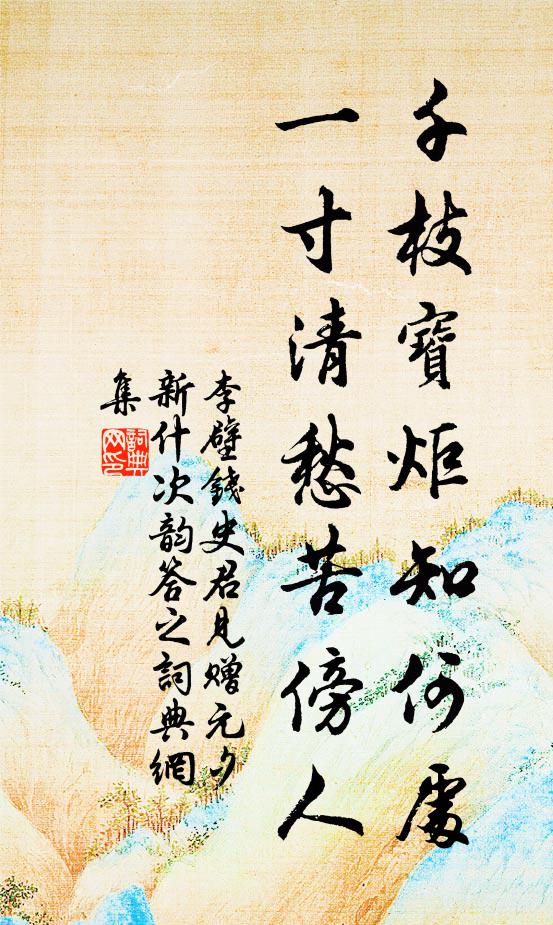 千枝寶炬知何處
一寸清愁苦傍人
李壁錢史君見贈元夕
新什次韵答之詞典網
集
詞典
网印